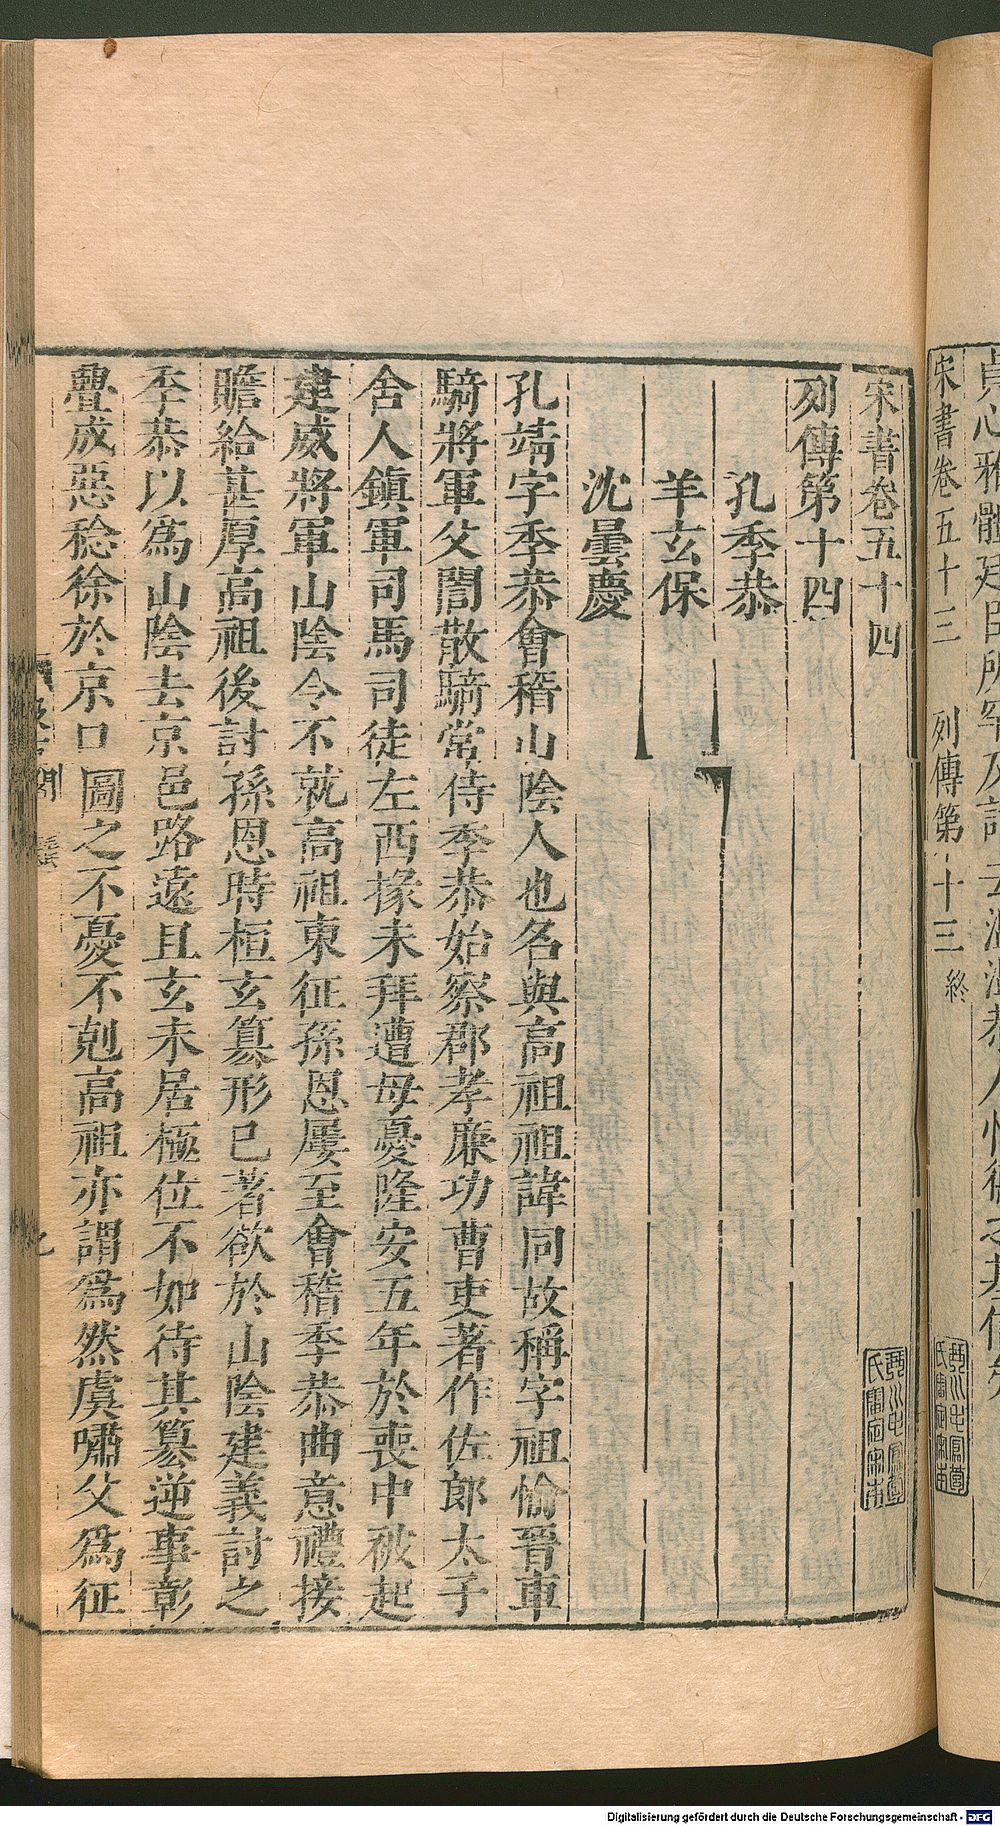 宋書卷五十三 列傳第十三 終
宋書卷五十四
列傳第十四
孔季恭
羊玄保
沈曇慶
孔靖字季恭會稽山陰人也名與高祖祖諱同故稱字祖愉晉車
騎將軍父誾散騎常侍季恭始察郡孝廉功曹吏著作佐郎太子
舍人鎮軍司馬司徒左西掾未拜遭母憂隆安五年於喪中被起
建威將軍山陰令不就高祖東征孫恩屢至會稽季恭曲意禮接
贍給甚厚高祖後討孫恩時桓玄篡形已著欲於山陰建義討之
季恭以為山陰去京邑路遠且玄未居極位不如待其篡逆事彰
釁成惡稔徐於京口圖之不憂不剋高祖亦謂為然虞嘯父為征
Digitalisierung gefördert durch die Deutsche Forschungsgemeinschaft - DFG